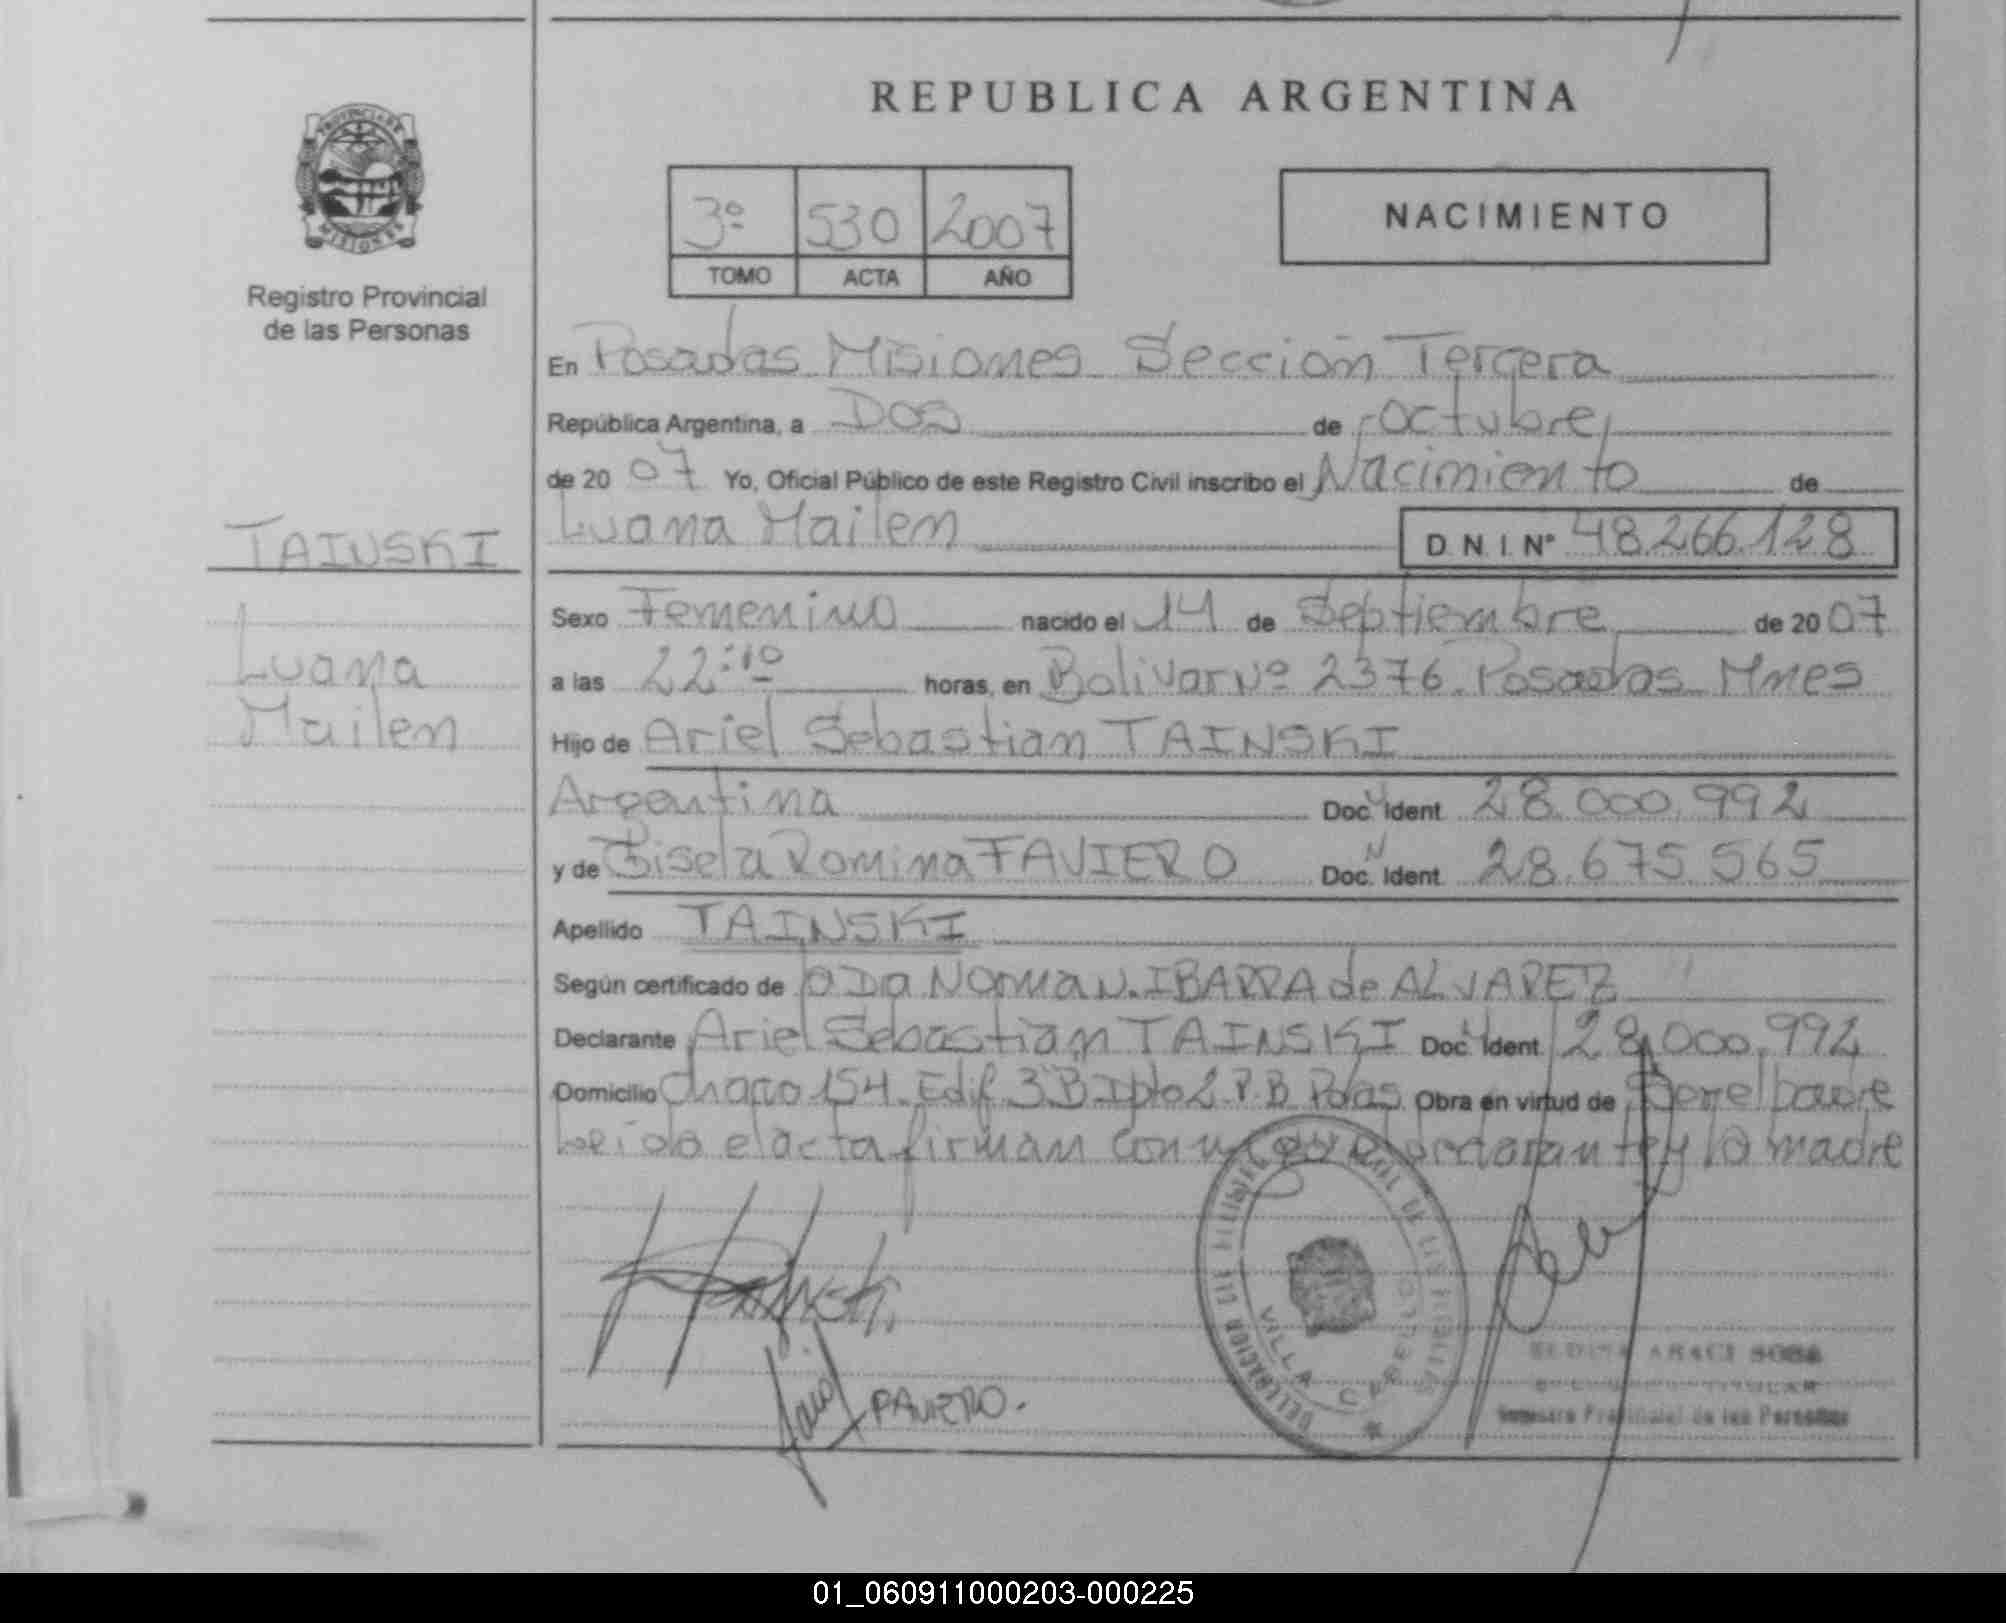 REPUBLICA ARGENTINA
PROVINCIA DE MISIONES
Registro Provincial
de las Personas
3º 530 2007
TOMO ACTA AÑO
NACIMIENTO
En Posadas Misiones Sección Tercera
República Argentina, a Dos de octubre
de 20 07 Yo, Oficial Público de este Registro Civil inscribo el Nacimiento de
Luana Mailen D.N.I. Nº 48.266.128
TAINSKI
Luana
Mailen
Sexo Femenino nacido el 14 de Septiembre de 20 07
a las 22:10 horas, en Bolivar Nº 2376 Posadas Mnes
Hijo de Ariel Sebastian TAINSKI
Argentina Doc. Ident. 28.000.992
y de Gisela Romina FAVIERO Doc. Ident. 28.675.565
Apellido TAINSKI
Según certificado de Norma N. IBARRA de ALVAREZ
Declarante Ariel Sebastian TAINSKI Doc. Ident. 28.000.992
Domicilio Chaco 154 Edif 3 B Dpto 2 P.B Pdas. Obra en virtud de Ser el padre
Leida el acta firman declarante y la madre
VILLA CABELLO
ARACI SOSA
TITULAR
Provincial de las Personas
01_060911000203-000225